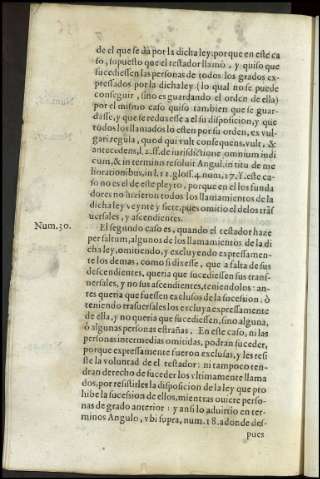 de el que se da por la dicha ley; porque en este ca
so, supuesto que el testador llamó, y quiso que
sucediessen las personas de todos los grados ex-
pressados por la dicha ley (lo qual no se puede
conseguir, sino es guardando el orden de ella)
por el mismo caso quiso tambien que se guar-
dasse, y que se reduxesse a el su disposicion, y que
todos los llamados lo esten por su orden, ex vul-
gari regula, quod qui vult consequens, vult, &
antecedens, l. 2. ff. de iurisdictione omnium iudi
cum, & in terminis resoluit Angul. in titu. de me
liorationibus, in l. 11. gloss. 4. num. 17. Y este ca-
so no es el de este pleyto, porque en el los funda
dores no hizieron todos los llamamientos de la
dicha ley veynte y siete, pues omitio el de los trãs
uersales, y ascendientes.
Num. 30.
El segundo caso es, quando el testador haze
per saltum, algunos de los llamamientos de la di
cha ley, omitiendo, y excluyendo expressamen-
te los demas, como si dixesse, que a falta de sus
descendientes, queria que sucediessen sus trans-
uersales, y no sus ascendientes, teniendolos: an-
tes queria que fuessen exclusos de la sucession. ò
teniendo trasuersales los excluya expressamente
de ella, y no queria que sucediessen, sino alguna,
ò algunas personas estrañas. En este caso, ni las
personas intermedias omitidas, podran suceder,
porque expressamente fueron exclusas, y les resi
ste la voluntad de el testador: ni tampoco ten-
dran derecho de suceder los vltimamente llama
dos, por resistirles la disposicion de la ley que pro
hibe la sucession de ellos, mientras ouiere perso-
nas de grado anterior: y ansi lo aduirtio en ter-
minos Angulo, vbi supra, num. 18. a donde des-
pues